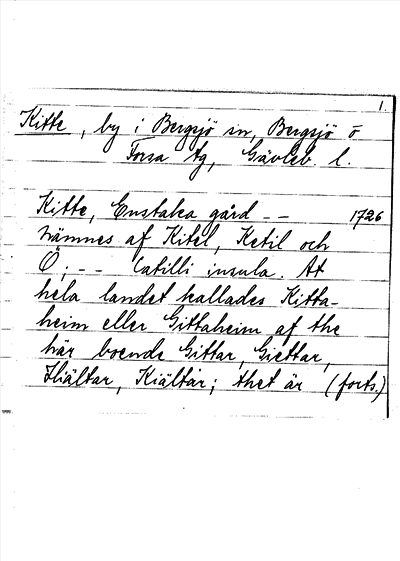 1.
Kitte, by i Bergsjö sn, Bergsjö o
Forsa tg, Gävleb. l.
Kitte, Enstaka gård - - 1726
nämnes af Kitel, Ketil och
Ö; - - Catilli insula. At
hela landet kallades Kitta-
heim eller Gittaheim af the
här boende Gittar, Giettar,
Hiältar, Kiältar; thet är (forts.)